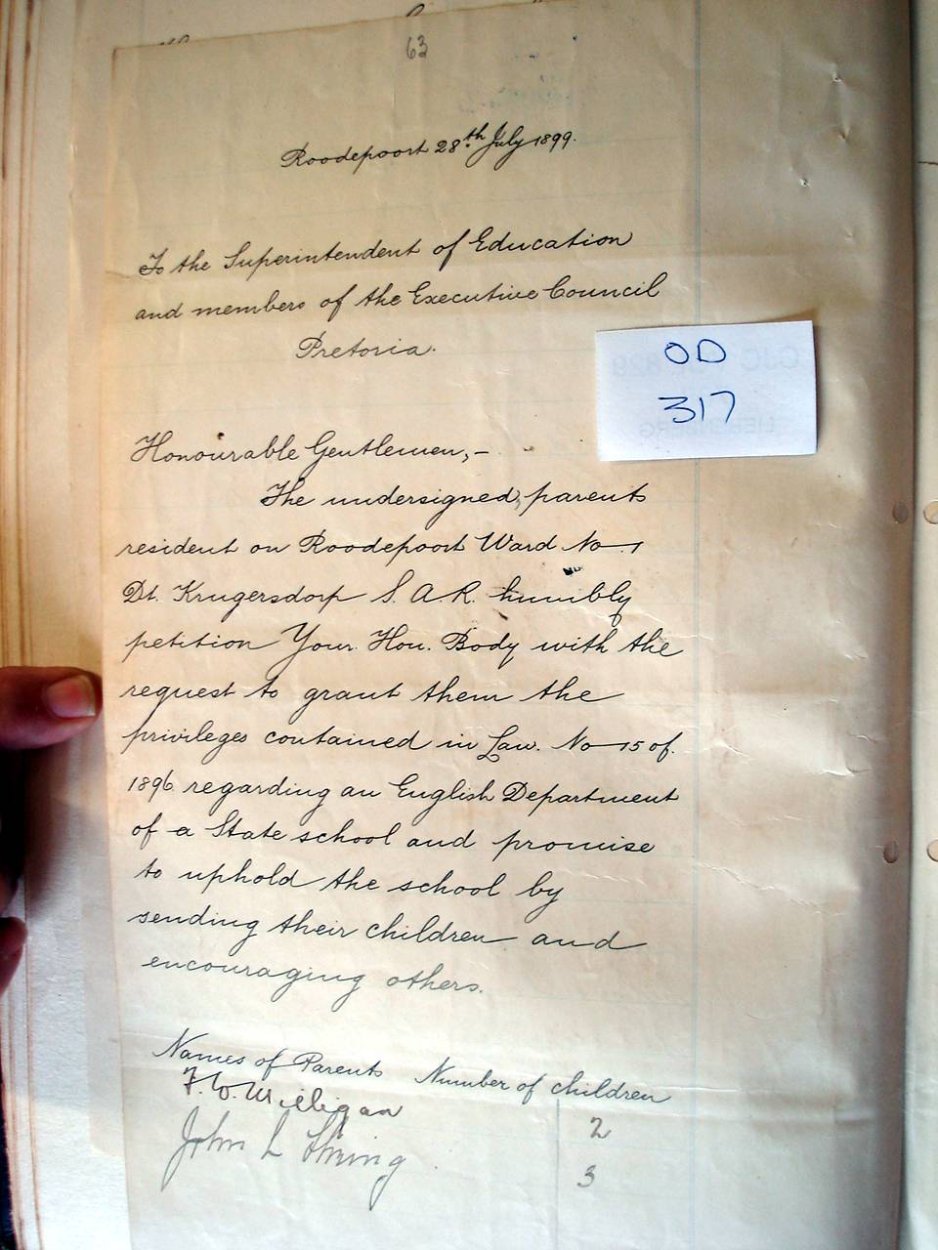 63
Roodepoort 28th July 1899.
To the Superintendent of Education
and members of the Executive Council
Pretoria.
OD
317
Honourable Gentlemen,-
The undersigned, parents
resident on Roodepoort Ward No 1
Dt. Krugersdorp S.A.R. humbly
petition Your Hon. Body with the
request to grant them the
privileges contained in Law. No 15 of.
1896 regarding an English Department
of a State school and promise
to uphold the school by
sending their children and
encouraging others.
Names of Parents Number of children
Milligan 2
John L 3